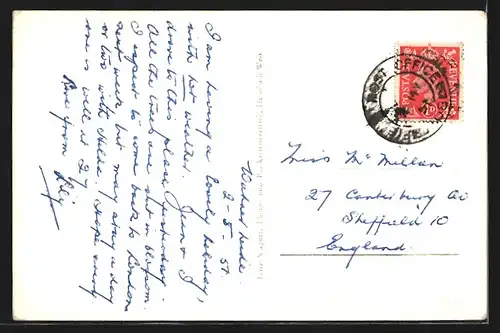 2-5-51.
I am having a lovely holiday,
with hot weather. Jane & I
drove to this place yesterday.
All the trees are out in blossom.
I expect to come back to London
next week, but may stay a day
or two with Hilda. Hope every
one is well at 27.
Love from
Lily
Miss McMillan
27 Canterbury Av
Sheffield 10
England.
POST OFFICE